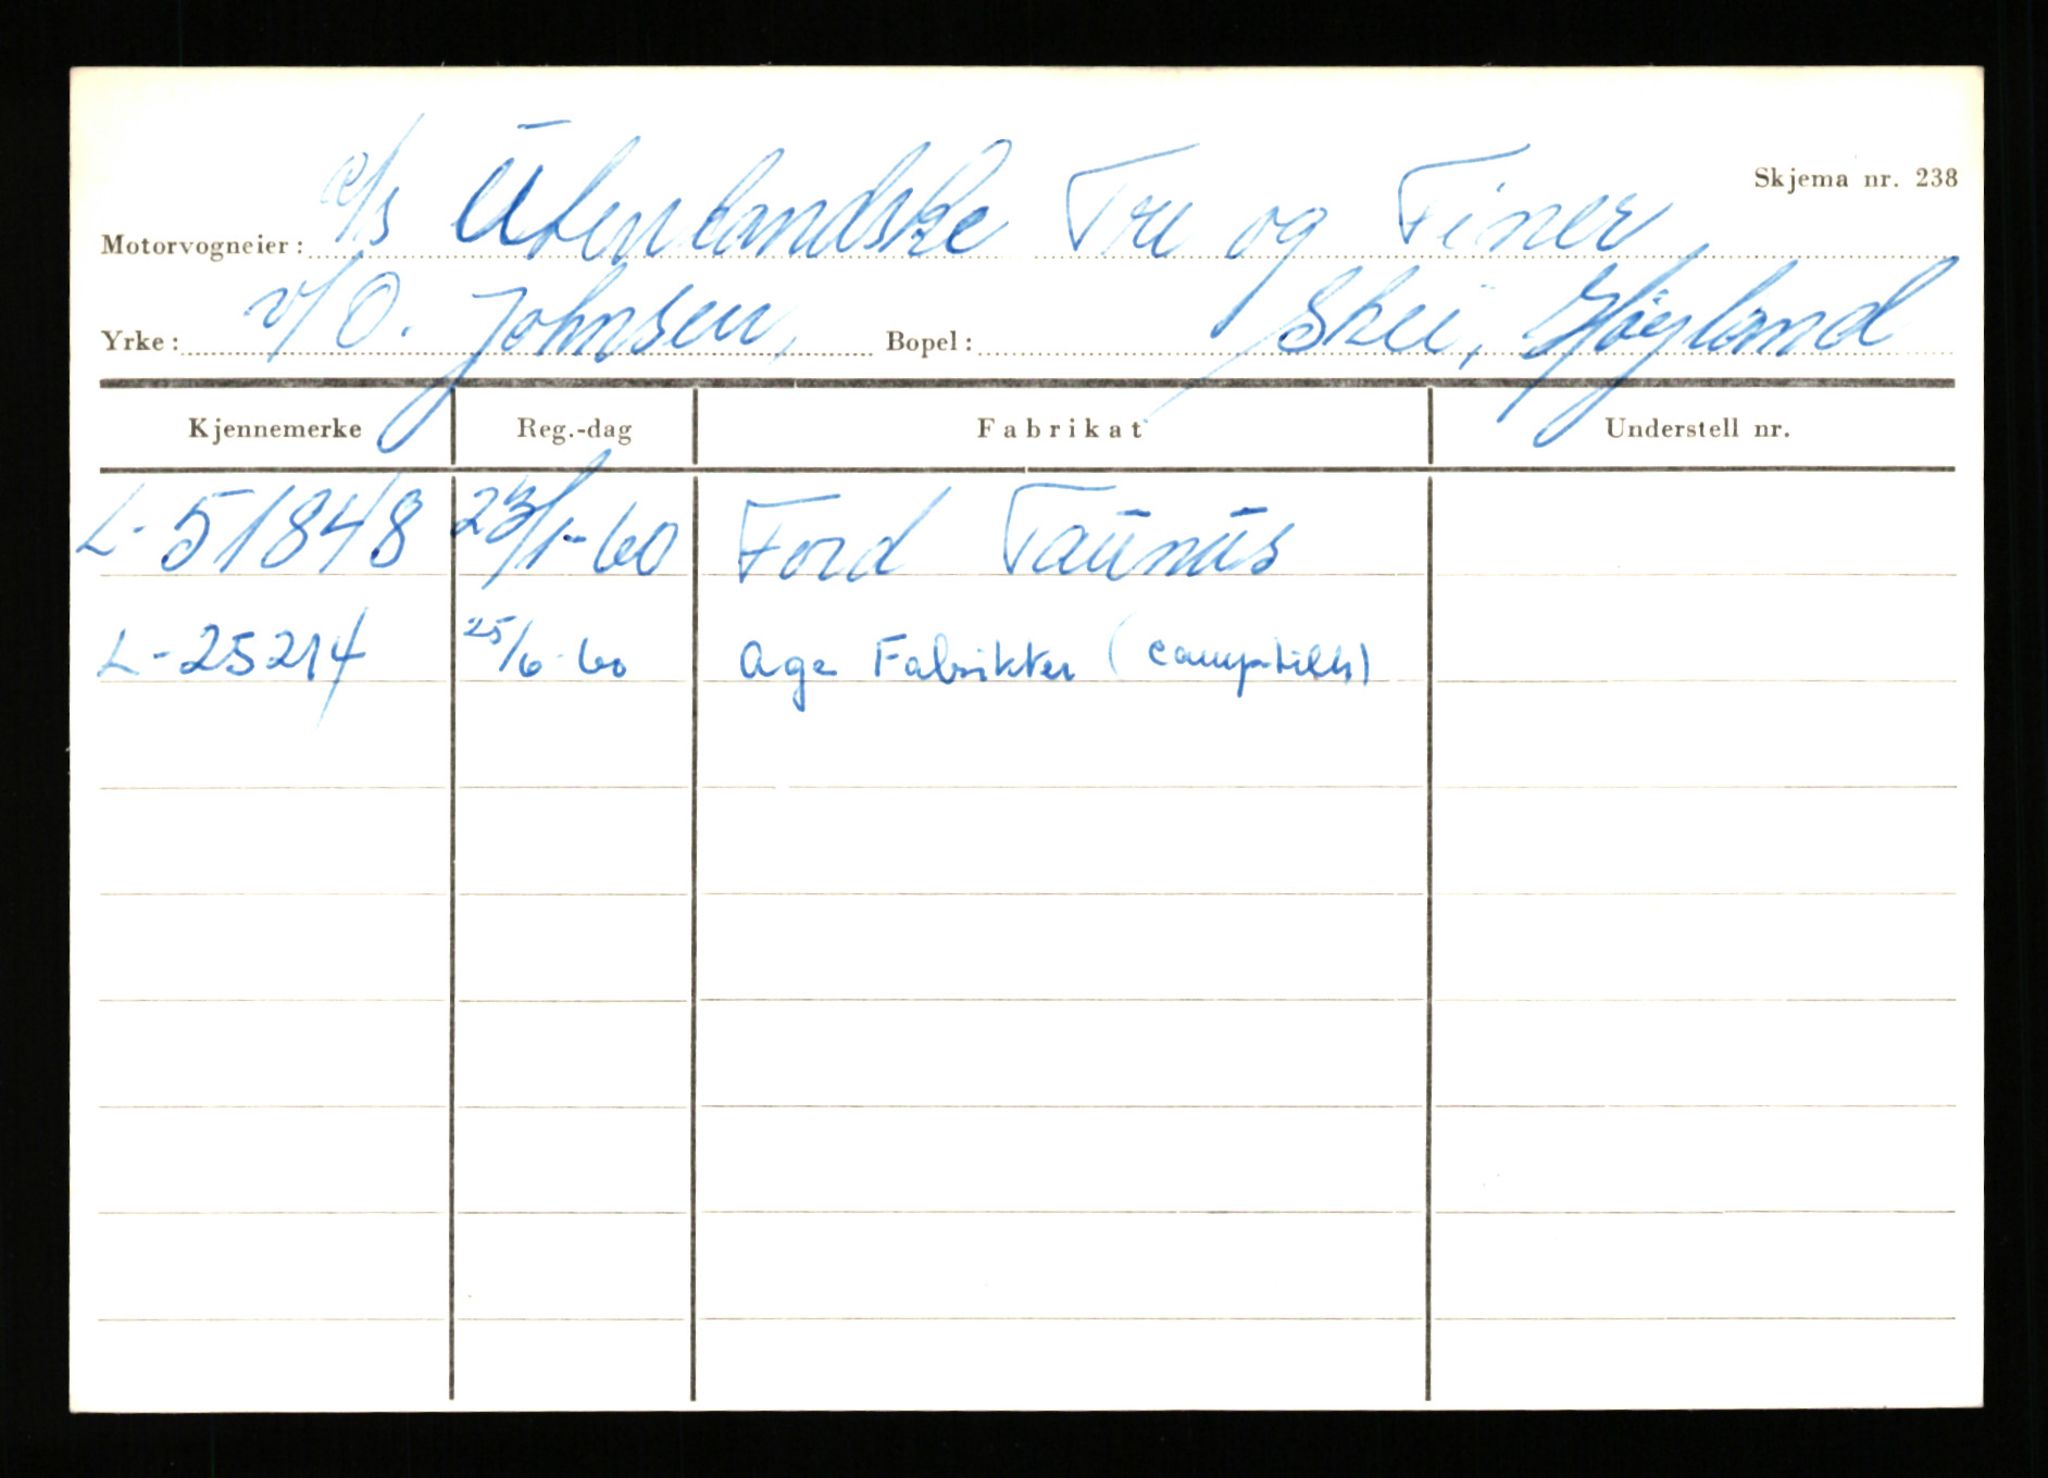 Skjema nr. 238
Motorvogneier: A/S Utenlandske Tre og Finer,
Yrke: v/ O. Johnsen, Bopel: Skei, Høyland
Kjennemerke Reg.-dag Fabrikat Understell nr.
L-51848 23/1-60 Ford Taunus
L-25214 25/6-60 Age Fabrikker (camptilh)